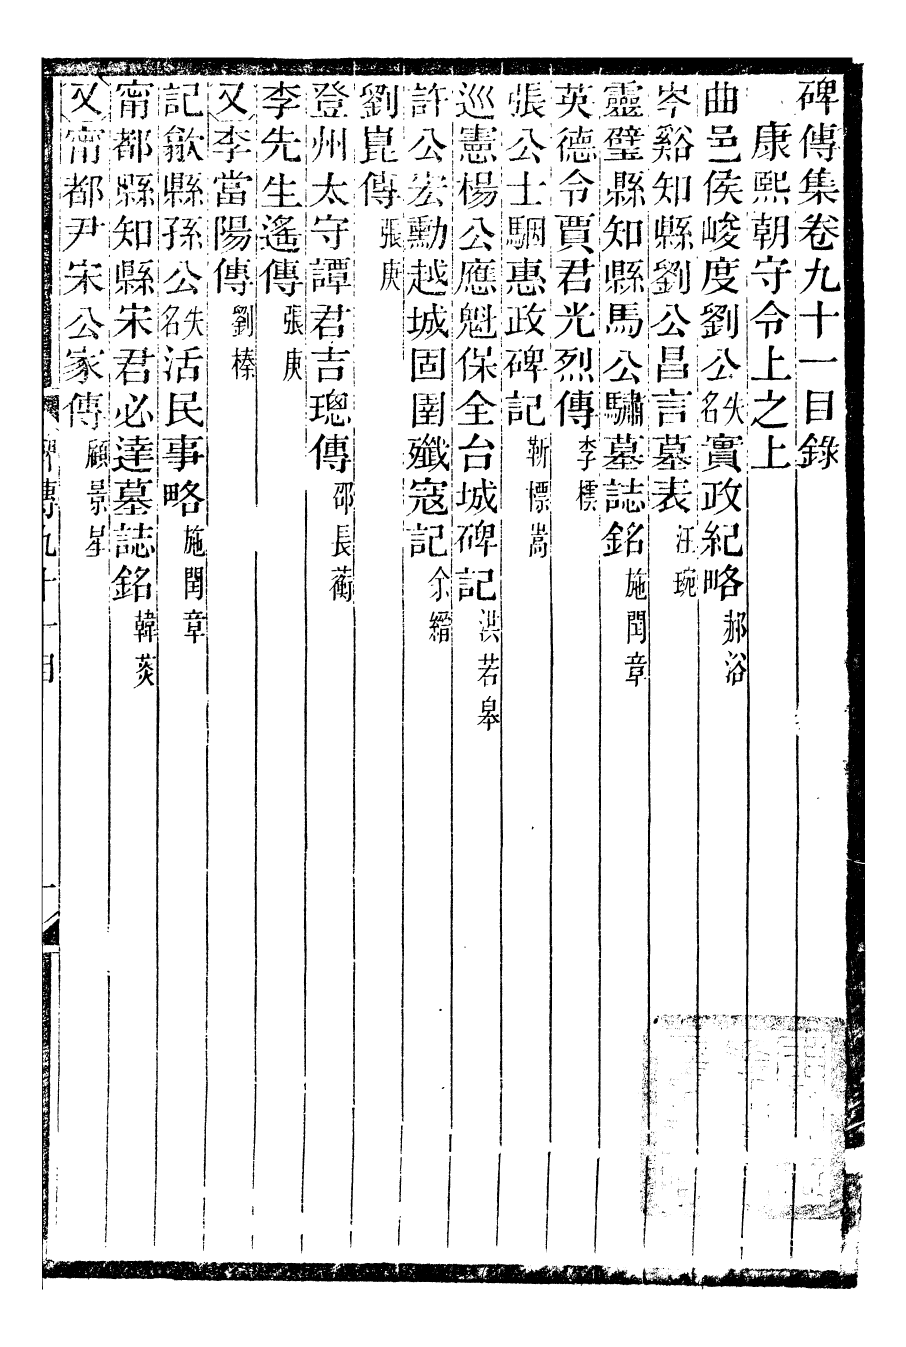 碑傳集卷九十一目錄
康熙朝守令上之上
曲邑侯峻度劉公失名實政紀略 郝浴
岑谿知縣劉公昌言墓表 汪琬
靈璧縣知縣馬公驌墓誌銘 施閏章
英德令賈君光烈傳 李橒
張公士駰惠政碑記 靳慓嵩
巡憲楊公應魁保全台城碑記 洪若皋
許公宏勳越城固圉殲寇記 余縉
劉崑傳 張庚
登州太守譚君吉璁傳 邵長蘅
李先生遙傳 張庚
又李當陽傳 劉榛
記歙縣孫公失名活民事略 施閏章
甯都縣知縣宋君必達墓誌銘 韓菼
又甯都尹宋公家傳 顧景星
碑傳九十一目
一